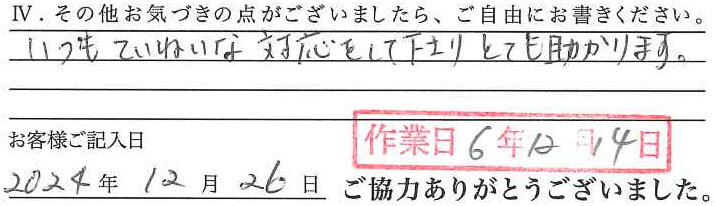 Ⅳ．その他お気づきの点がございましたら、ご自由にお書きください。
いつもていねいな対応をして下さりとても助かります。
お客様ご記入日
作業日 6年12月14日
2024年 12月 26日 ご協力ありがとうございました。